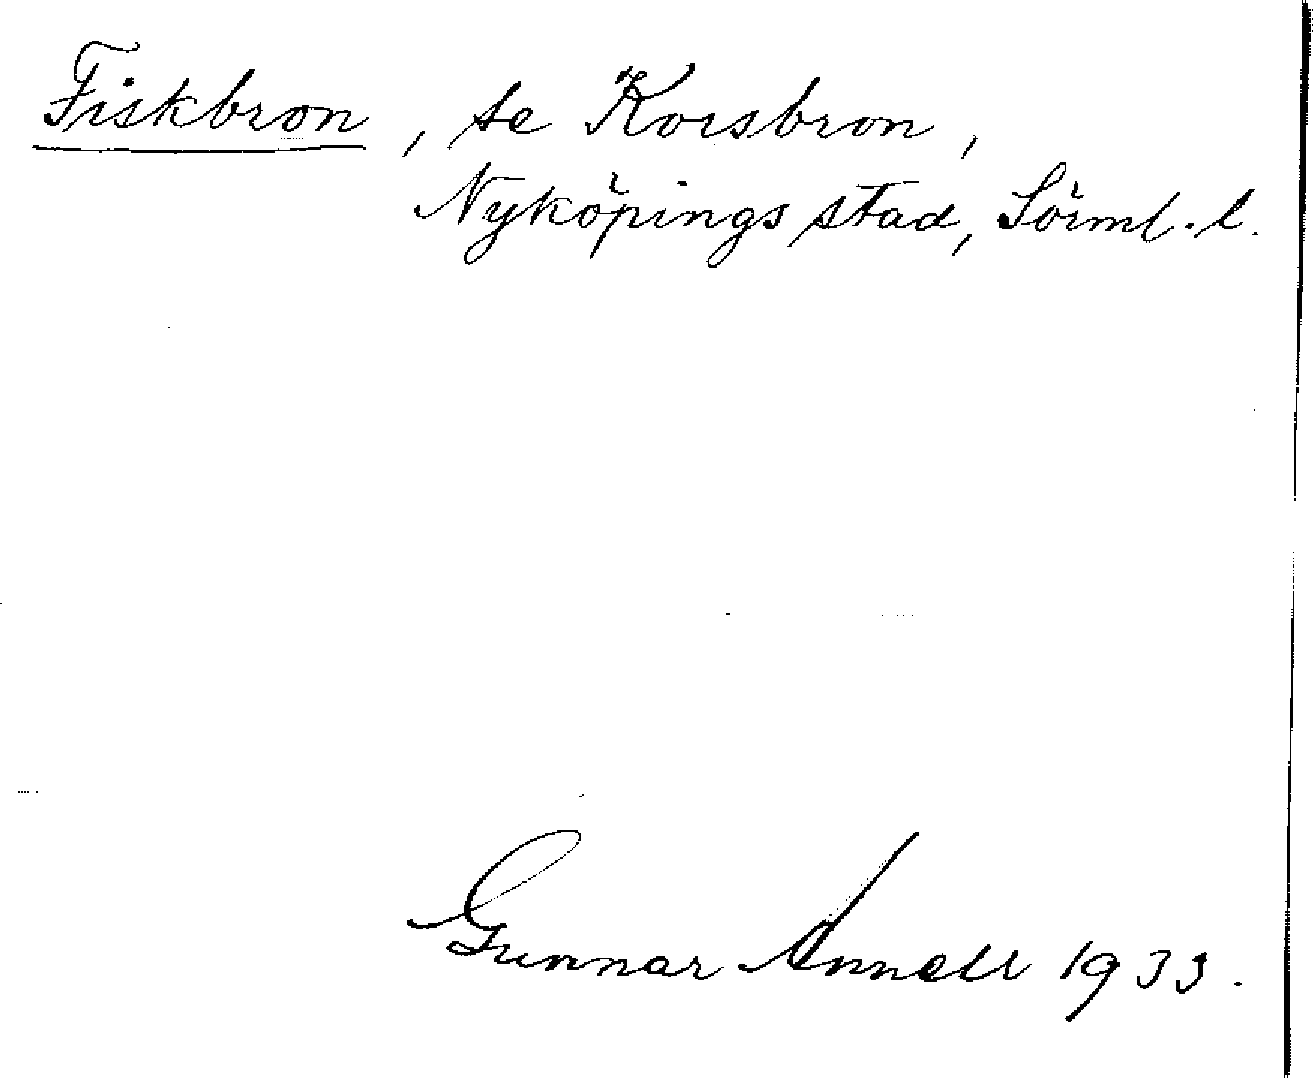 Fiskbron, se Korsbron,
Nyköpings stad, Sörml. l.
Gunnar Annell 1933.